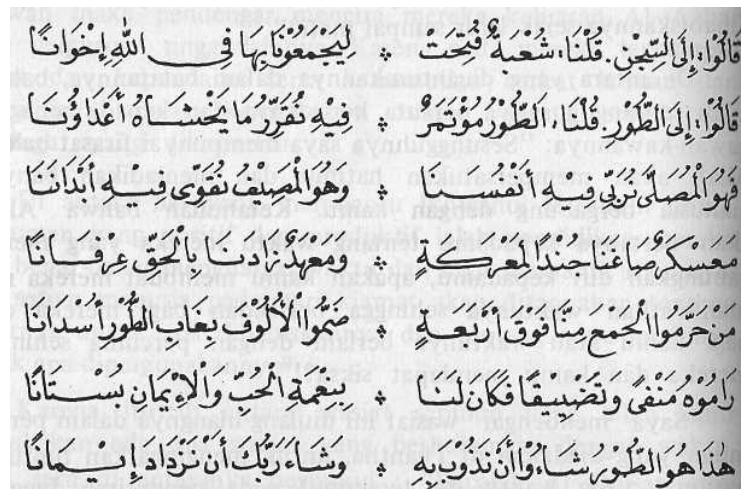 قَالُوْا: إِلَى السِّجْنِ. قُلْنَا: شُعْبَةٌ فُتِحَتْ ❖ لِيَجْمَعُوْنَا بِهَا فِي اللهِ إِخْوَانًا
قَالُوْا: إِلَى الطُّوْرِ. قُلْنَا: الطُّوْرُ مُؤْتَمَرٌ ❖ فِيْهِ نُقَرِّرُ مَا يَخْشَاهُ أَعْدَاؤُنَا
فَهُوَ الْمُصَلَّى نُرَبِّي فِيْهِ أَنْفُسَنَا ❖ وَهُوَ الْمَصِيْفُ نُقَوِّى فِيْهِ أَبْدَانَنَا
مُعَسْكَرٌ صَاغَنَا جُنْدًا لِمَعْرَكَةٍ ❖ وَمَعْهَدٌ زَادَنَا بِالْحَقِّ عِرْفَانًا
مَنْ حَرَّمُوا الْجَمْعَ مِنَّا فَوْقَ أَرْبَعَةٍ ❖ ضَمُّوا الْأُلُوْفَ بِغَابِ الطُّوْرِ أُسْدَانَا
رَامُوْهُ مَنْفًى وَتَضْيِيْقًا فَكَانَ لَنَا ❖ بِنِعْمَةِ الْحُبِّ وَالْإِيْمَانِ بُسْتَانًا
هٰذَا هُوَ الطُّوْرُ شَاءُوْا أَنْ نَذُوْبَ بِهِ ❖ وَشَاءَ رَبُّكَ أَنْ نَزْدَادَ إِيْمَانًا